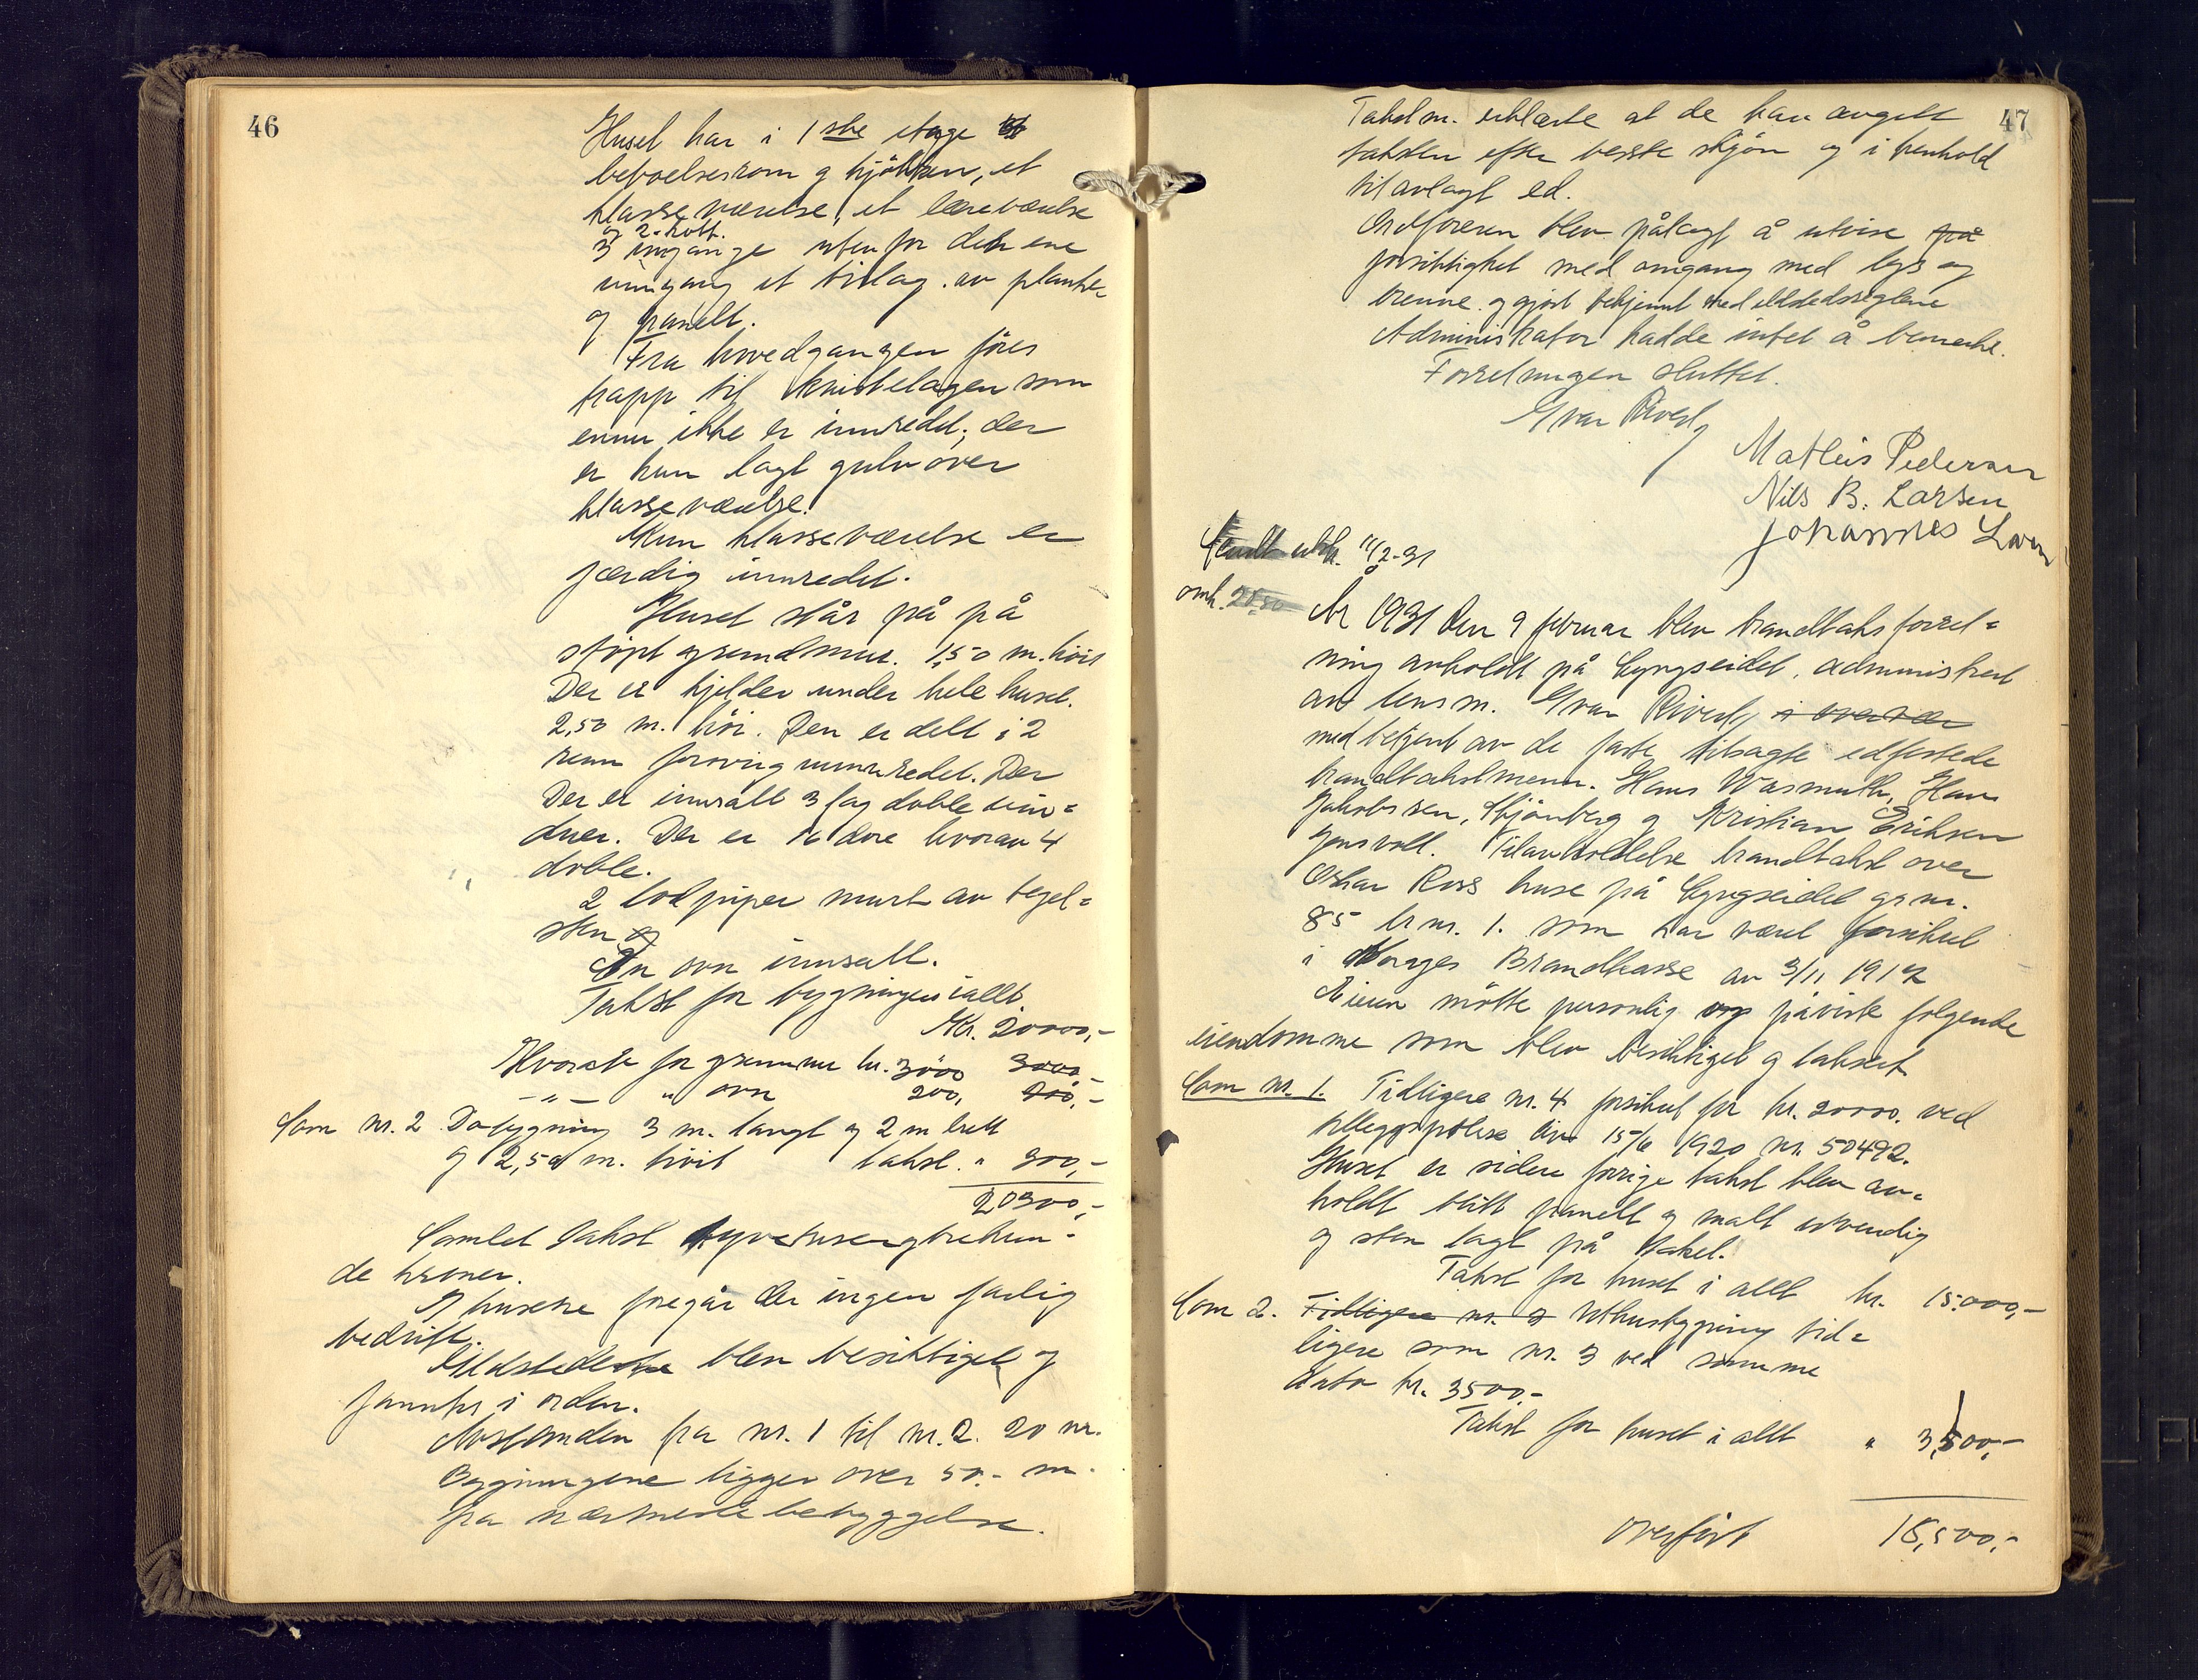 46
Huset har i 1ste etage
beboelsesrom og kjökken, et
klasseværelse, et læreværelse
og 2. kott.
3 innganger utenfor den ene
inngang et bislag av planke
og panelt.
Fra hovedgangen föres
trapp til kvistetagen som
ennu ikke er innredet, der
er kun lagt gulv over
klasseværelse.
Kun klasseværelse er
færdig innredet.
Huset står på på
stöpt grundmur. 1,50 m. höit
Der er kjelder under hele huset.
2,50 m. höi. Den er delt i 2
rum forövrig uinnredet. Der
Der er innsatt 3 fag doble vin-
duer. Der er dore hvorav 4
doble.
2 lodpiper murt av tegel-
sten og
En ovn innsatt.
Takst for bygningen i alt
Kr. 20000,-
Hvorav for grunmur kr. 3000 3000,-
-"- " ovn 200, 200,-
Som nr. 2 Dobygning 3 m. langt og 2 m bredt
og 2,50 m. höit takst. " 300,-
20300,-
Samlet takst tyvetusengtrehun-
de kroner.
I husene foregår der ingen farlig
bedrift.
Ildstedene blev besiktiget og
fanntes i orden.
Avstanden fra nr. 1 til nr. 2. 20 m.
Bygningene ligger over 50.- m.
fra nærmeste bebyggelse.
47
Takstm. erklærte at de har avgitt
taksten efter beste skjön og i henhold
til avlagt ed.
Ordföreren blev pålagt å utvise på
forsiktighet med omgang med lys og
brenne og gjort bekjennt med ildstedsreglene
Administrator hadde intet å bemerke.
Forretningen sluttet.
Ivar Riverts
Mathis Pedersen
Nils B. Larsen
Johannes
Sendt utskr. 11/2-31
omk.
År 1931 den 9 februar blev brandtakstforret-
ning avholdt på Lyngseidet, administrert
av lensm. Ivar Rivertz i overvær
med betjent av de faste tilsagte edfestede
brandtakstmenn. Hans Wasmuth, Hans
Jakobsen, Skjönberg og Kristian Eriksen
Jensvoll. Til avholdelse brandtakst over
Oskar Ross huse på Lyngseidet gr.nr.
85 br nr. 1. som har været forsikret
i Norges Brandkasse av 3/11 1917
Eieren mötte personlig og påviste folgende
eiendomme som blev besiktiget og takseret
Som nr. 1. Tidligere nr. 4 forsikret for kr. 20000. ved
tilleggspolise av 15/6 1920 nr. 50492.
Huset er siden forrige takst blev av-
holdt blitt panelt og malt utvendig
og sten lagt på taket.
Takst for huset i allt kr. 15.000,-
Som 2. Tidligere nr. 2 Uthusbygning tid-
ligere som nr. 3 ved samme
dato kr. 3500.-
Takst for huset i allt " 3,500,-
overfört 18,500,-